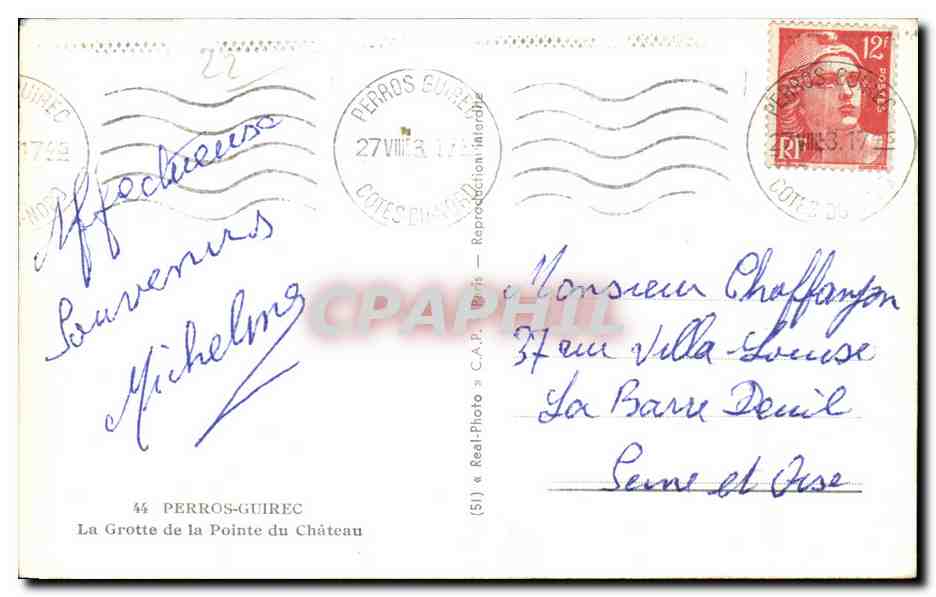 22
GUIREC
PERROS GUIREC
27 VIII 3. 17
COTES DU NORD
12F
POSTES
RF
PERROS GUIREC
27 VIII 3. 17
COTES DU
Affectueuse
Souvenirs
Michelme
Monsieur Chaffanjon
37 rue Villa-Louise
La Barre Deuil
Seine et Oise
44 PERROS-GUIREC
La Grotte de la Pointe du Château
(51) « Real-Photo » C.A.P. Paris — Reproduction interdite
CPAPHIL